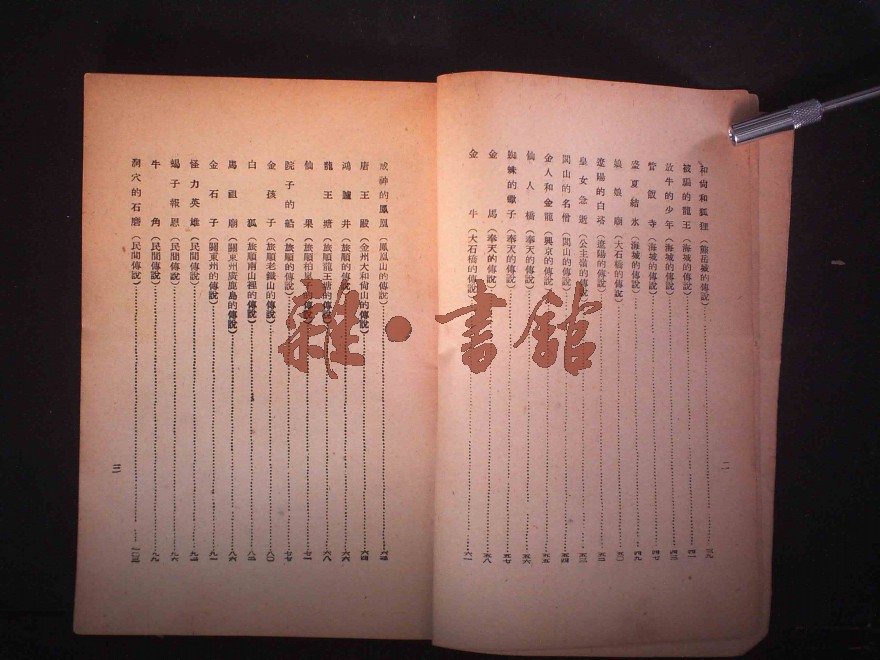 和尚和狐狸(熊岳城的傳說)………三九
被騙的龍王(海城的傳說)………四一
放牛的少年(海城的傳說)………四三
管飯寺(海城的傳說)………四七
盛夏結氷(海城的傳說)………四九
娘娘廟(大石橋的傳說)………五〇
遼陽的白塔(遼陽的傳說)………五二
皇女急逝(公主嶺的傳說)………五三
閭山的名僧(閭山的傳說)………五四
金人和金龍(興京的傳說)………五五
仙人橋(奉天的傳說)………五六
蜘蛛的蠍子(奉天的傳說)………五七
金馬(奉天的傳說)………五八
金牛(大石橋的傳說)………六一
二
成神的鳳凰(鳳凰山的傳說)………六二
唐王殿(金州大和尚山的傳說)………六四
鴻臚井(旅順的傳說)………六六
龍王塘(旅順龍王塘的傳說)………六八
仙果(旅順柏嵐的傳說)………七一
院子的船(旅順的傳說)………七七
金孩子(旅順老鐵山的傳說)………八〇
白狐(旅順南山裡的傳說)………八二
馬祖廟(關東州廣鹿島的傳說)………八六
金石子(關東州的傳說)………九一
怪力英雄(民間傳說)………九二
蝎子報恩(民間傳說)………九六
牛角(民間傳說)………九九
洞穴的石磨(民間傳說)………一〇三
三
雜·書舘